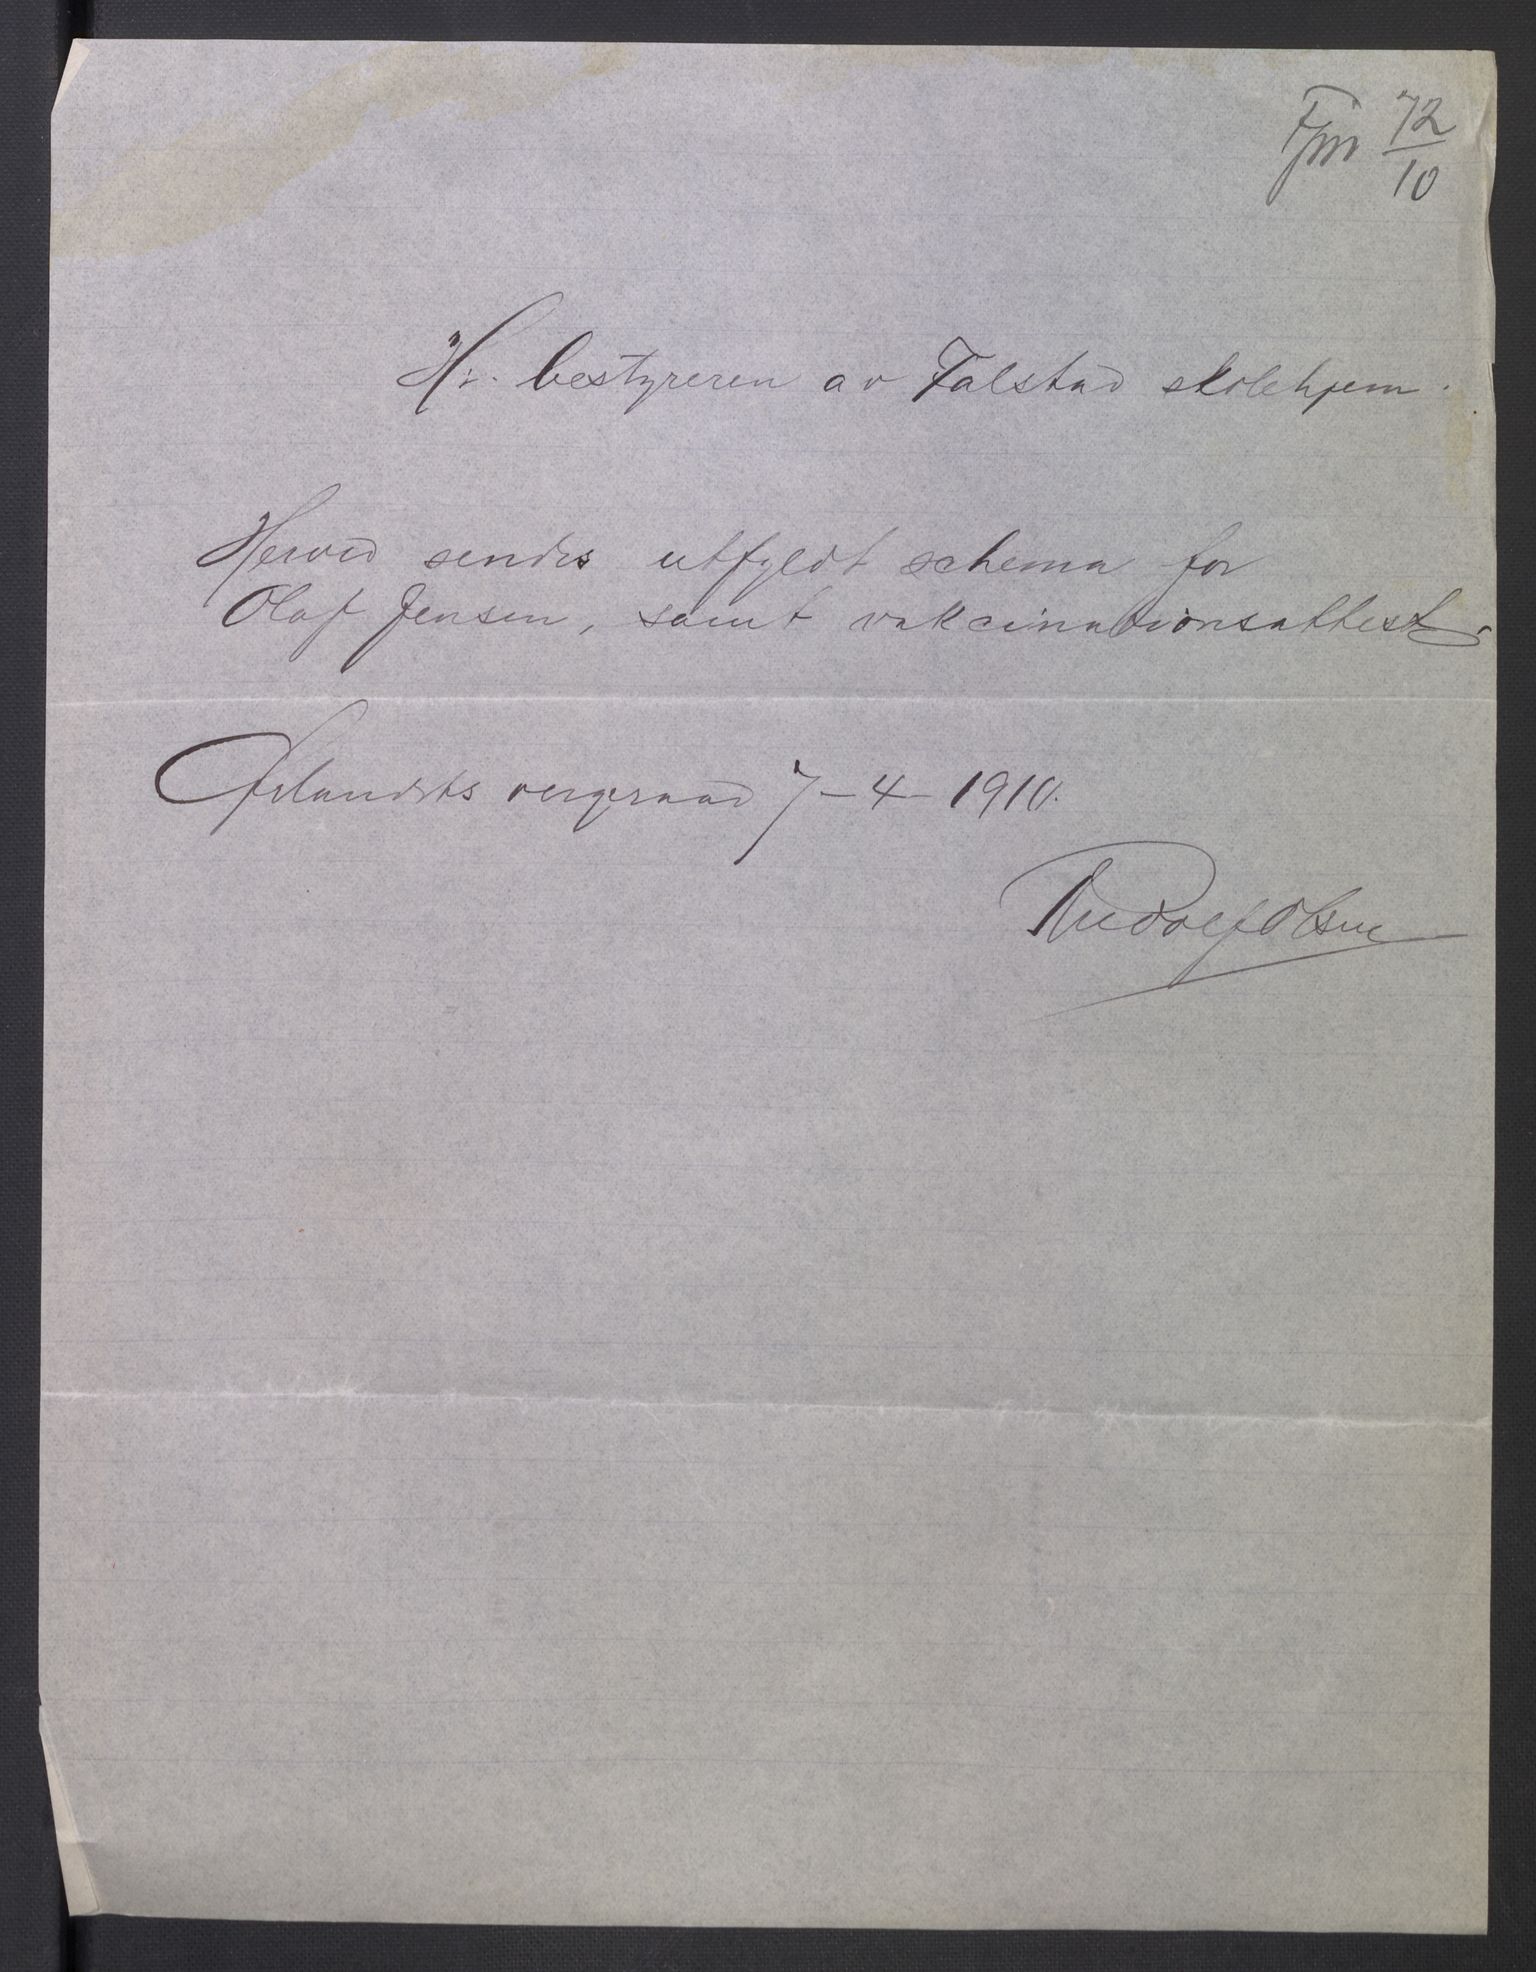 72
10
Hr. bestyreren av Falstad skolehjem.
Herved sendes utfyldt schema for
Olaf Jensen, samt vakcinationsattest.
Ørlandets vergeraad 7-4-1910.
Rudolf Olsen